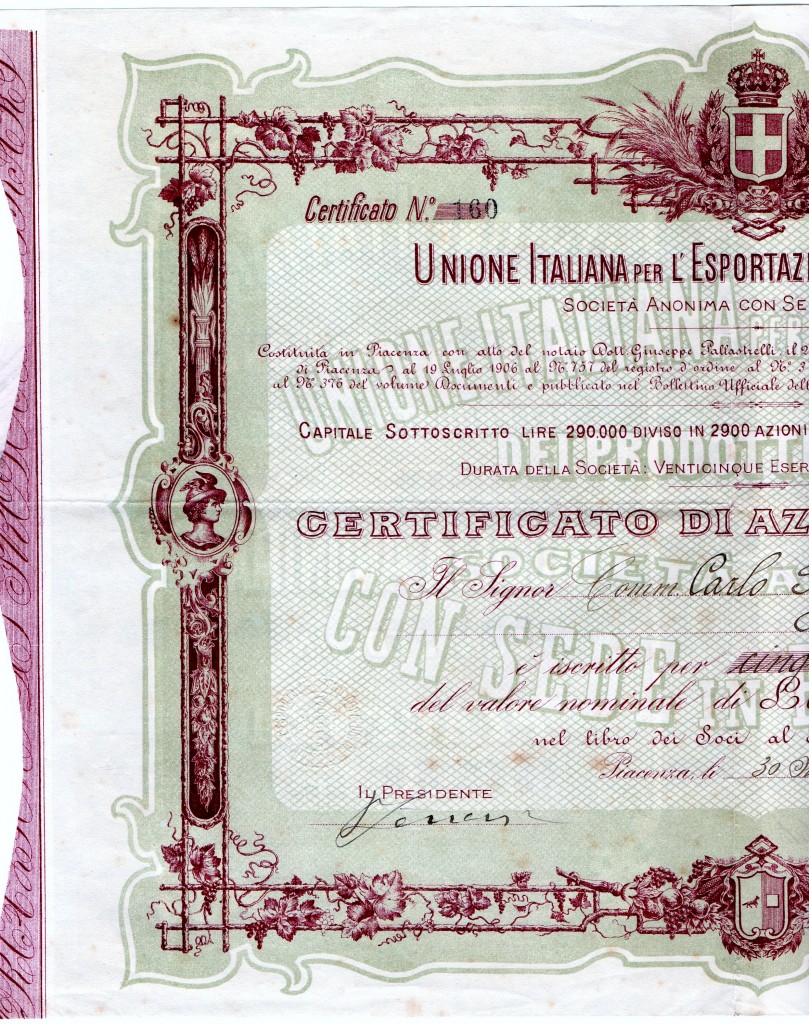 Certificato N.º 160
UNIONE ITALIANA PER L'ESPORTAZI
SOCIETÀ ANONIMA CON SE
Costituita in Piacenza con atto del notaio Dott. Giuseppe Pallastrelli, il 2
di Piacenza al 19 Luglio 1906 al Nº 757 del registro d'ordine al Nº 3
al Nº 376 del volume Documenti e pubblicato nel Bollettino Ufficiale del
CAPITALE SOTTOSCRITTO LIRE 290.000 DIVISO IN 2900 AZIONI
DURATA DELLA SOCIETÀ: VENTICINQUE ESER
CERTIFICATO DI AZ
Il Signor Comm. Carlo
è iscritto per cinq
del valore nominale di L
nel libro dei Soci al
Piacenza, li 30
IL PRESIDENTE
UNIONE ITALIANA PER
DEI PRODOTTI
SOCIETÀ A
CON SEDE IN